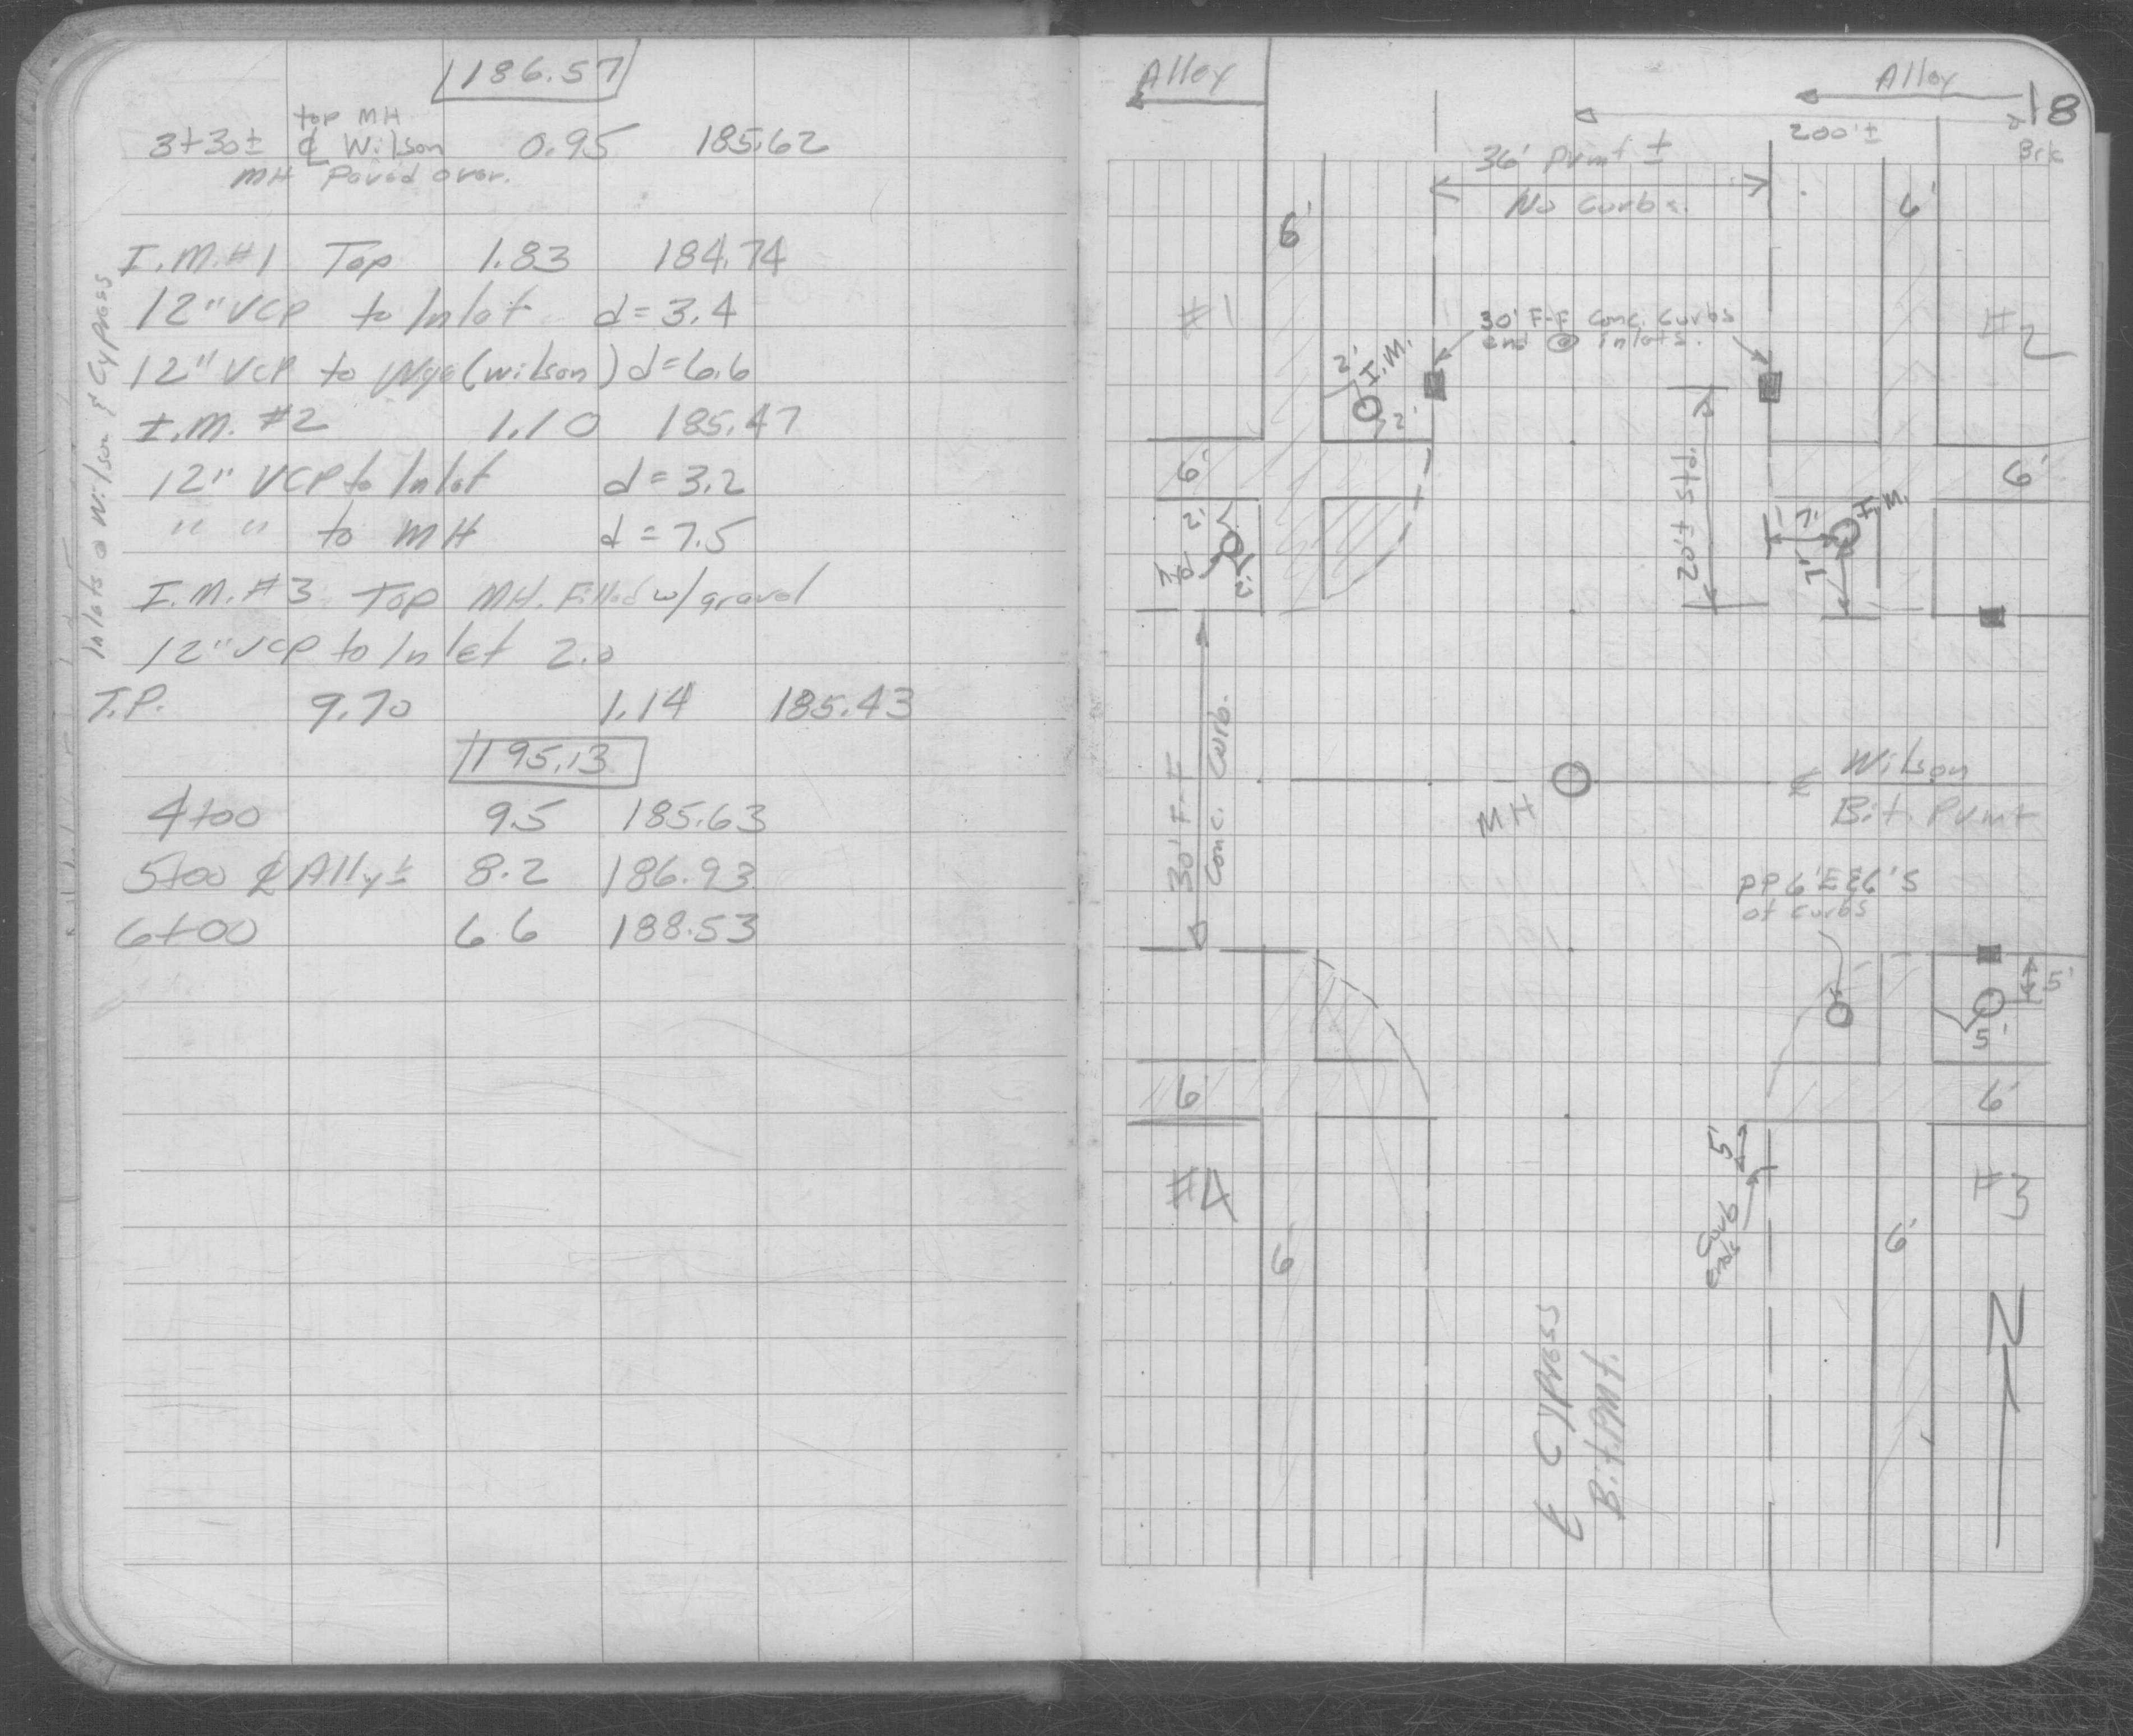 186.57
top MH
3+30± ℄ Wilson 0.95 185.62
MH Paved over.
Inlets @ Wilson & Cypress
I.M.#1 Top 1.83 184.74
12" VCP to Inlet d=3.4
12" VCP to Wye (Wilson) d=6.6
I.M. #2 1.10 185.47
12" VCP to Inlet d=3.2
" " to MH d=7.5
I.M.#3 Top MH. Filled w/gravel
12" VCP to Inlet 2.0
T.P. 9.70 1.14 185.43
195.13
4+00 9.5 185.63
5+00 ℄ Ally± 8.2 186.93
6+00 6.6 188.53
Alley
Alley
18
200'±
Brk
36' Pvmt ±
No Curbs.
6'
6'
#1
30' F-F Conc. Curbs
end @ inlets.
#2
2'
I.M.
2'
6'
20'± Std.
6'
2'
Hyd
2'
7'
I.M.
7'
30' F-F
Conc. Curb.
MH
℄ Wilson
Bit. Pvmt
PP 6'E&6'S
of curbs
5'
5'
6'
6'
5'
Curb
ends
#4
#3
6'
6'
N
℄ Cypress
Bit. PMt.